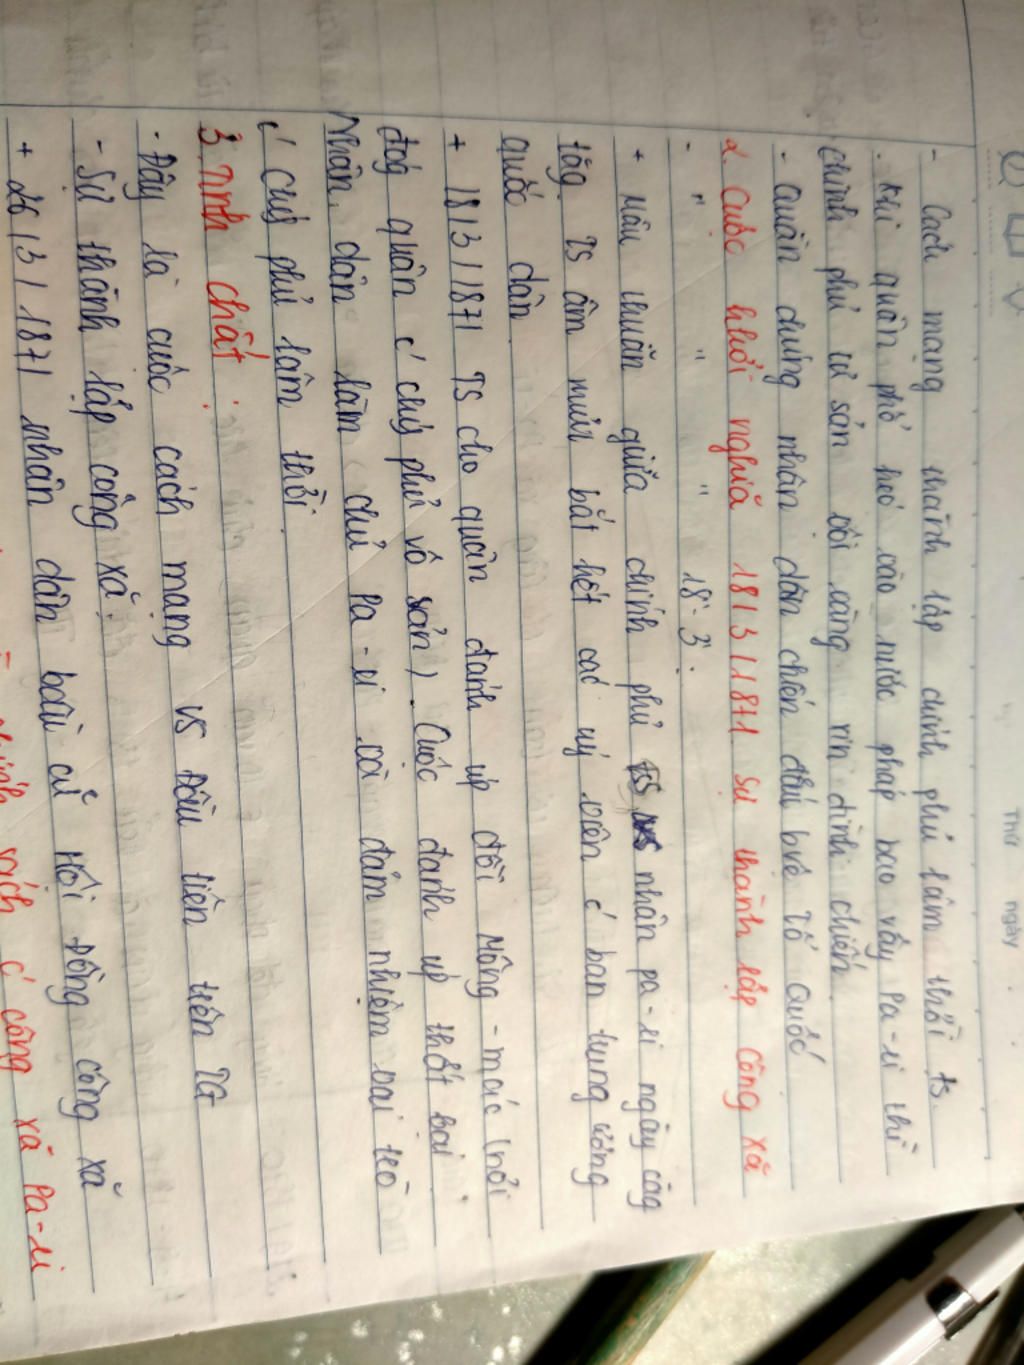 Thứ ngày
- Cách mạng thành lập chính phủ lâm thời ts
- Khi quân phổ kéo vào nước pháp bao vây Pa-ri thì
chính phủ tư sản vội vàng xin đình chiến
- Quần chúng nhân dân chiến đấu bvệ Tổ Quốc
2. Cuộc khởi nghĩa 18/3/1871 sự thành lập công xã
- " " " 18-3.
+ Mâu thuẫn giữa chính phủ TS nhân pa-ri ngày càg
tăg. TS âm mưu bắt hết các uỷ viên c' ban trung ương
quốc dân
+ 18/3/1871 TS cho quân đánh úp đồi Mông-mác (nơi
đóg quân c' chíh phủ vô sản). Cuộc đánh úp thất bại
Nhân dân làm chủ Pa-ri và đảm nhiệm vai trò
c' chíh phủ lâm thời.
3. Tính chất
- Đây là cuộc cách mạng VS đầu tiên trên TG
- Sự thành lập công xã.
+ 26/3/1871 nhân dân bầu cử Hội Đồng công xã
chính sách c' công xã Pa-ri